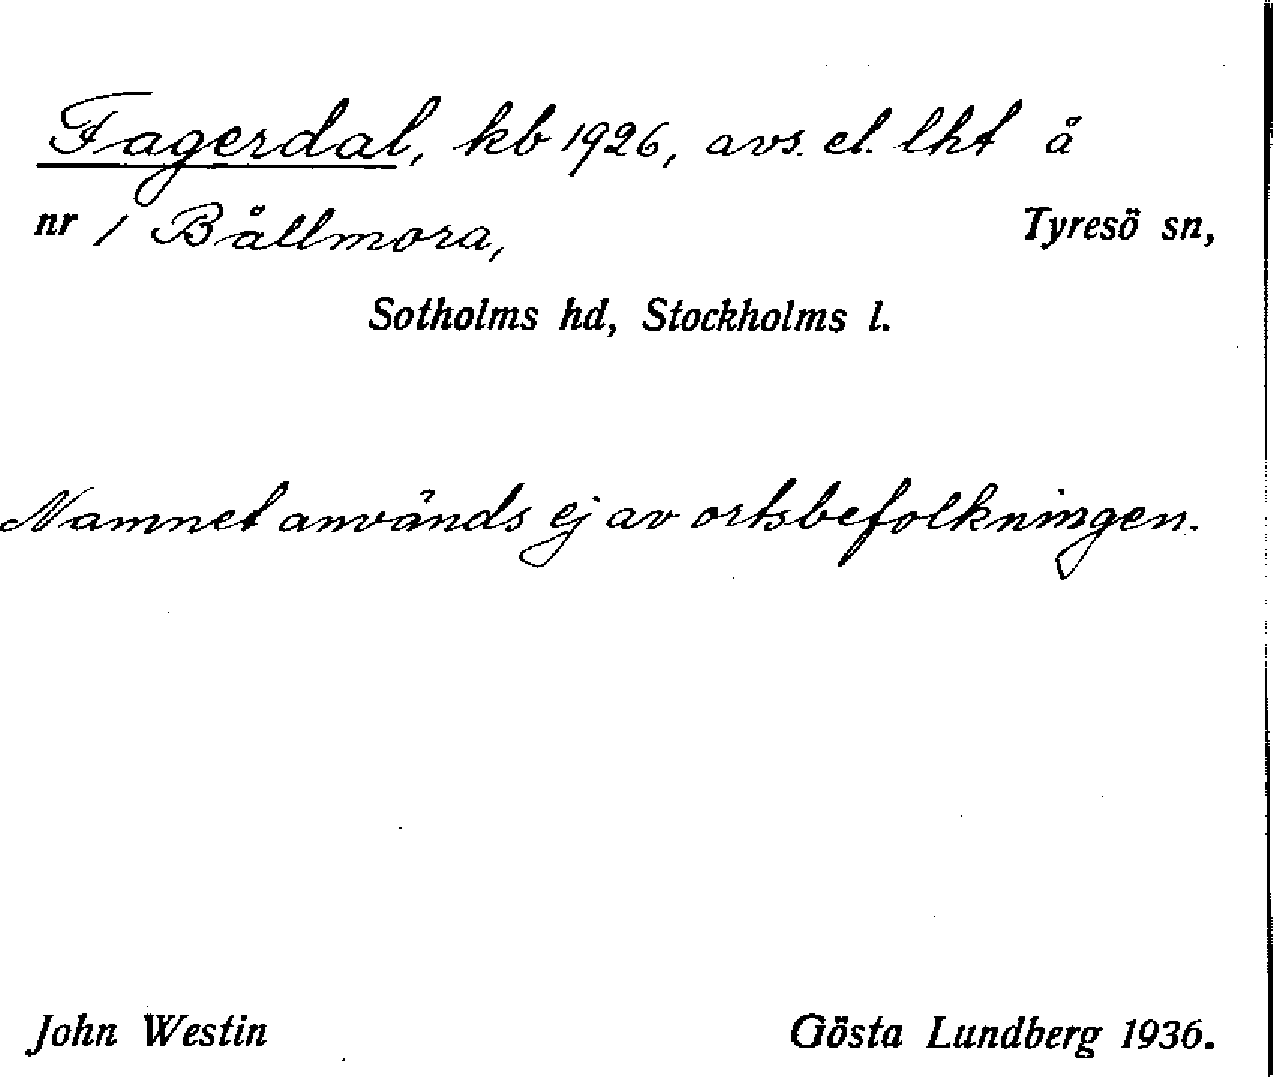 Fagerdal, kb 1926, avs. el. lht å
nr 1 Bållmora, Tyresö sn,
Sotholms hd, Stockholms l.
Namnet används ej av ortsbefolkningen.
John Westin Gösta Lundberg 1936.